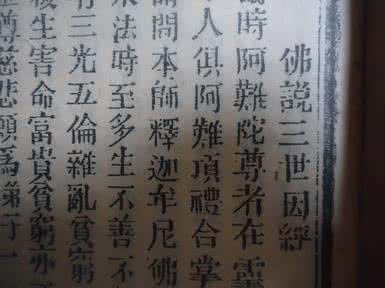 佛說三世因經
時阿難陀尊者在靈
人俱阿難頂禮合掌
請問本師釋迦牟尼佛
末法時至多生不善不
有三光五倫雜亂貧窮
生害命富貴貧窮亦
尊慈悲願爲第行一